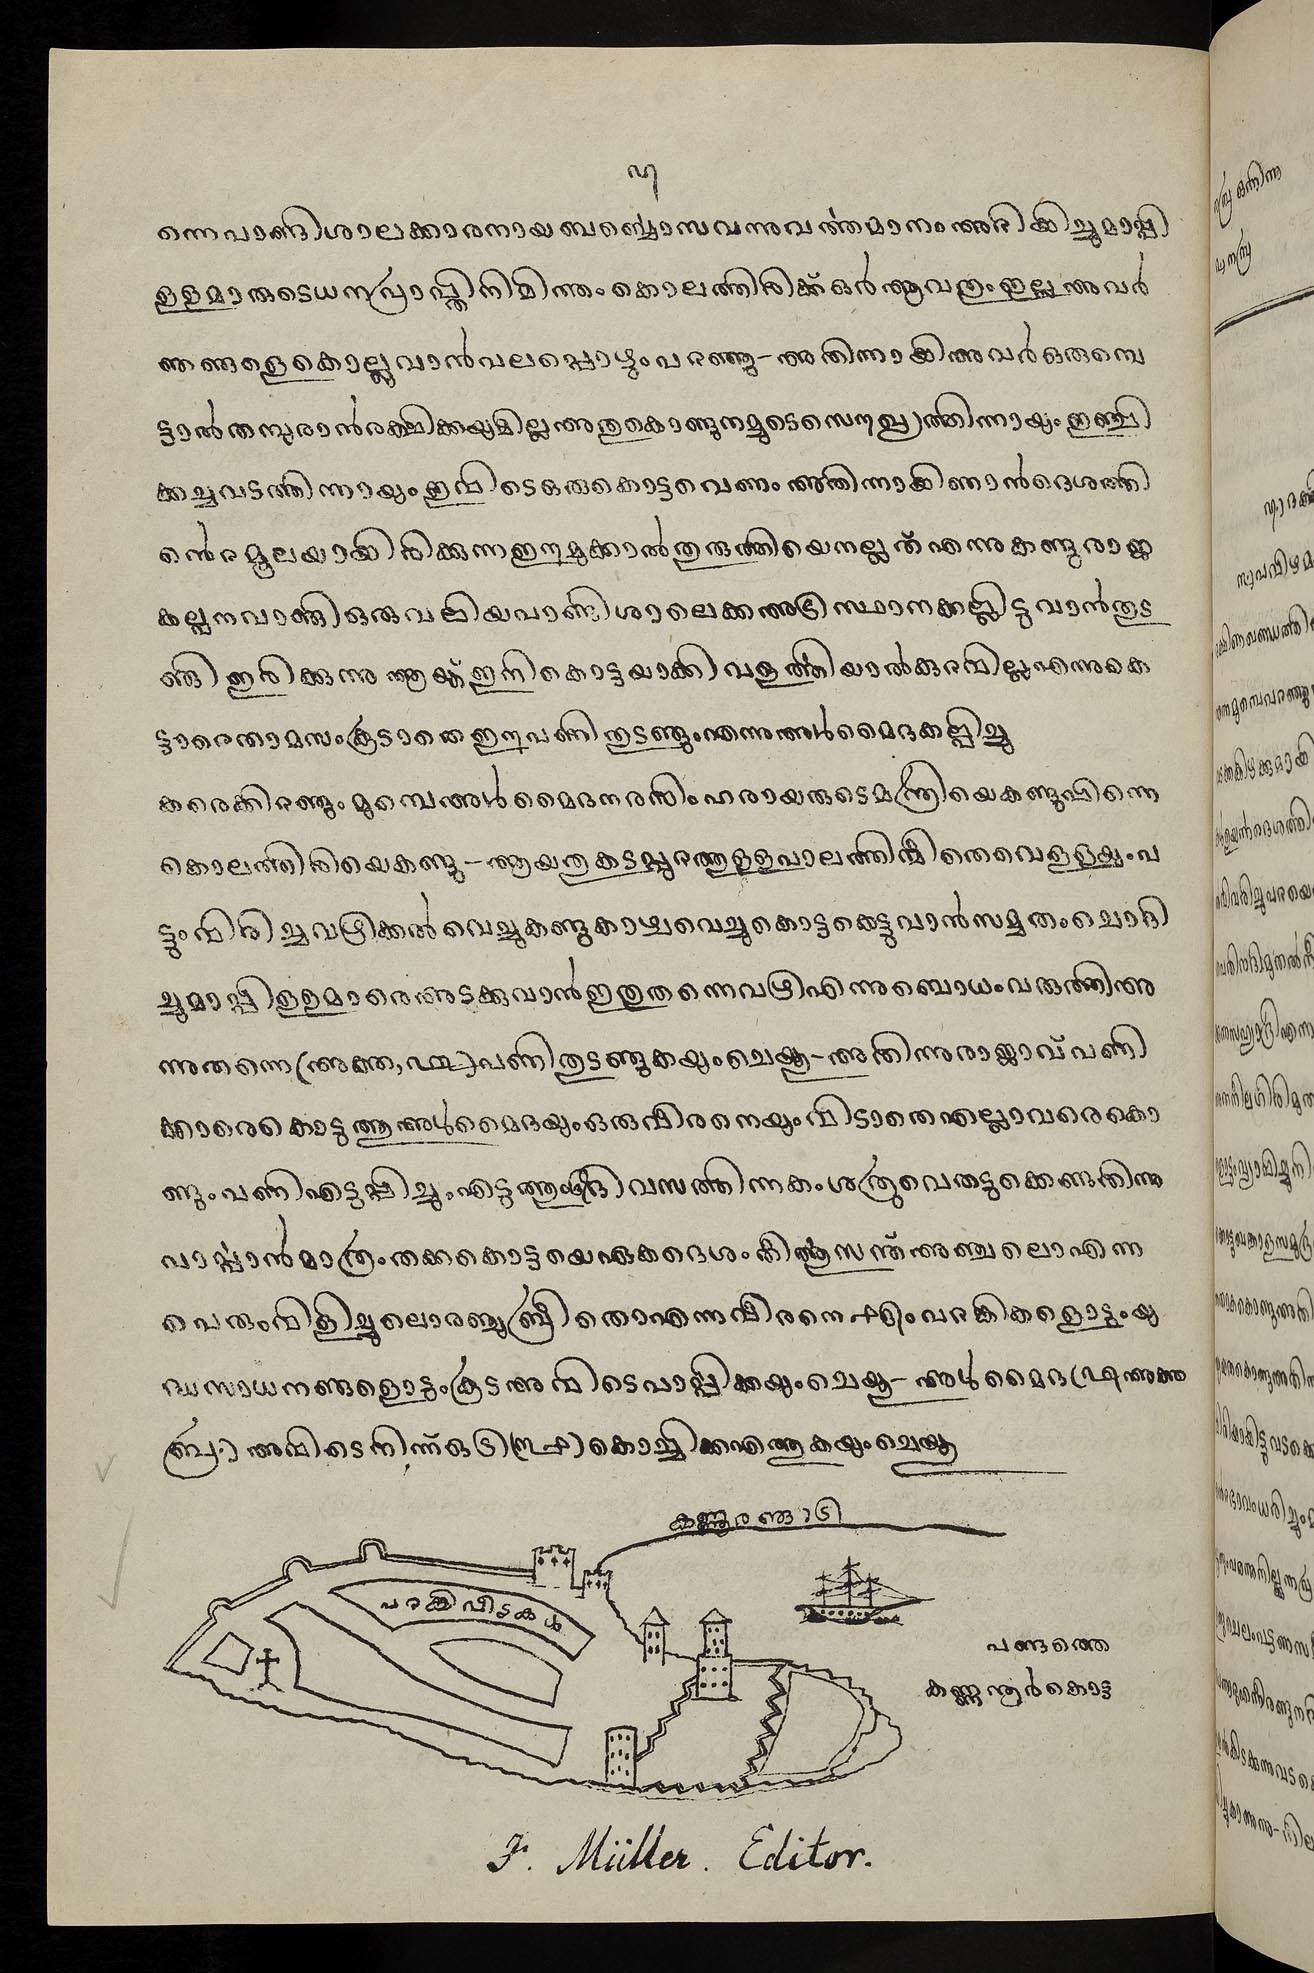 ൮
ന്നെ പാണ്ടിശാലക്കാരനായ ബൎബ്ബൊസ വന്നു വൎത്തമാനം അറിക്കിച്ചു മാപ്പി
ള്ളമാരുടെ ധനപ്രാപ്തിനിമിത്തം കൊലത്തിരിക്ക് ഒർ ആവതും ഇല്ല അവർ
ഞങ്ങളെ കൊല്ലുവാൻ പലപ്പൊഴും പറഞ്ഞു– അതിന്നാക്കി അവർ ഒരുമ്പെ
ട്ടാൽ തമ്പുരാൻ രക്ഷിക്കയുമില്ല അതുകൊണ്ടു നമ്മുടെ സൌഖ്യത്തിന്നായും ഇഞ്ചി
ക്കച്ചവടത്തിന്നായും ഇവിടെ ഒരു കൊട്ട വെണം അതിന്നാക്കി ഞാൻ ദെശത്തി
ൻ്റെ മൂലയായിരിക്കുന്ന ഈ മുക്കാൽതുരുത്തിയെ നല്ലത് എന്നു കണ്ടു രാജ
കല്പന വാങ്ങി ഒരു വലിയ പാണ്ടിശാലെക്ക അടിസ്ഥാനക്കല്ലിട്ടുവാൻ തുട
ങ്ങി ഇരിക്കുന്നു ആയ്ത് ഇനി കൊട്ടയാക്കി വളൎത്തിയാൽ കുറവില്ല എന്നു കെ
ട്ടാരെ താമസം കൂടാതെ ഈ പണി തുടങ്ങും എന്നു അൾമൈദ കല്പിച്ചു
കരെക്കിറങ്ങും മുമ്പെ അൾമൈദ നരസിംഹരായരുടെ മന്ത്രിയെ കണ്ടു പിന്നെ
കൊലത്തിരിയെ കണ്ടു– ആയതു കടപ്പുറത്തുള്ള പാലത്തിന്മീതെ വെള്ളയും പ
ട്ടും വിരിച്ച വഴിക്കൽ വെച്ചു കണ്ടു കാഴ്ചവെച്ചു കൊട്ട കെട്ടുവാൻ സമ്മതം ചൊദി
ച്ചു മാപ്പിള്ളമാരെ അടക്കുവാൻ ഇതു തന്നെ വഴി എന്നു ബൊധം വരുത്തി അ
ന്നു തന്നെ പണി തുടങ്ങുകയും ചെയ്തു– അതിന്നു രാജാവ് പണി
ക്കാരെ കൊടുത്തു അൾമൈദയും ഒരു വീരനെയും വിടാതെ എല്ലാവരെ കൊ
ണ്ടും പണി എടുപ്പിച്ചും എടുത്തും ദിവസത്തിന്നകം ശത്രുവെ തടുക്കെണ്ടതിന്നു
പാൎപ്പാൻ മാത്രം തക്ക കൊട്ടയെ ഏകദെശം തീൎത്തു സന്ത് അഞ്ചലൊ എന്ന
പെരും വിളിച്ചു ലൊരഞ്ചു ബ്രീതൊ എന്ന വീരനെ പറങ്കികളൊടും യു
ദ്ധസാധനങ്ങളൊടും കൂട അവിടെ പാൎപ്പിക്കയും ചെയ്തു– അൾമൈദ
അവിടെ നിന്ന് ഓടി കൊച്ചിക്ക എത്തുകയും ചെയ്തു
കണ്ണൂരങ്ങാടി
പറങ്കി വീടകൾ
പണ്ടത്തെ
കണ്ണനൂർകൊട്ട
F. Müller. Editor.